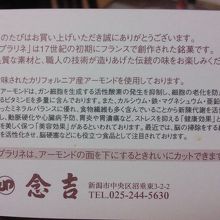 のたびはお買い上げいただき誠にありがとうございます。
プラリネ」は17世紀の初期にフランスで創作された銘菓です。
素材と、職人の技術が造りあげた伝統の味をお楽しみくだ
味されたカリフォルニア産アーモンドを使用しております。
アーモンドは、ガン細胞を生成する活性酸素の発生を抑制し、細胞の老化を防
るビタミンEを多量に含んでおります。また、カルシウム・鉄・マグネシウム・亜鉛
ったミネラルバランスに優れ、食物繊維も多く含んでいることにより新陳代謝を活
し、動脈硬化や心臓病の予防、胃炎や胃潰瘍など、ストレスを抑える「健康効果」に
を美しく保つ「美容効果」があるといわれております。また、最近では、脳の掃除をする
を活性化させ、脳梗塞などにも役立つ食品として注目されております。
プラリネは、アーモンドの面を下にするときれいにカットできます。
念吉
新潟市中央区沼垂東3-2-2
TEL.025-244-5630